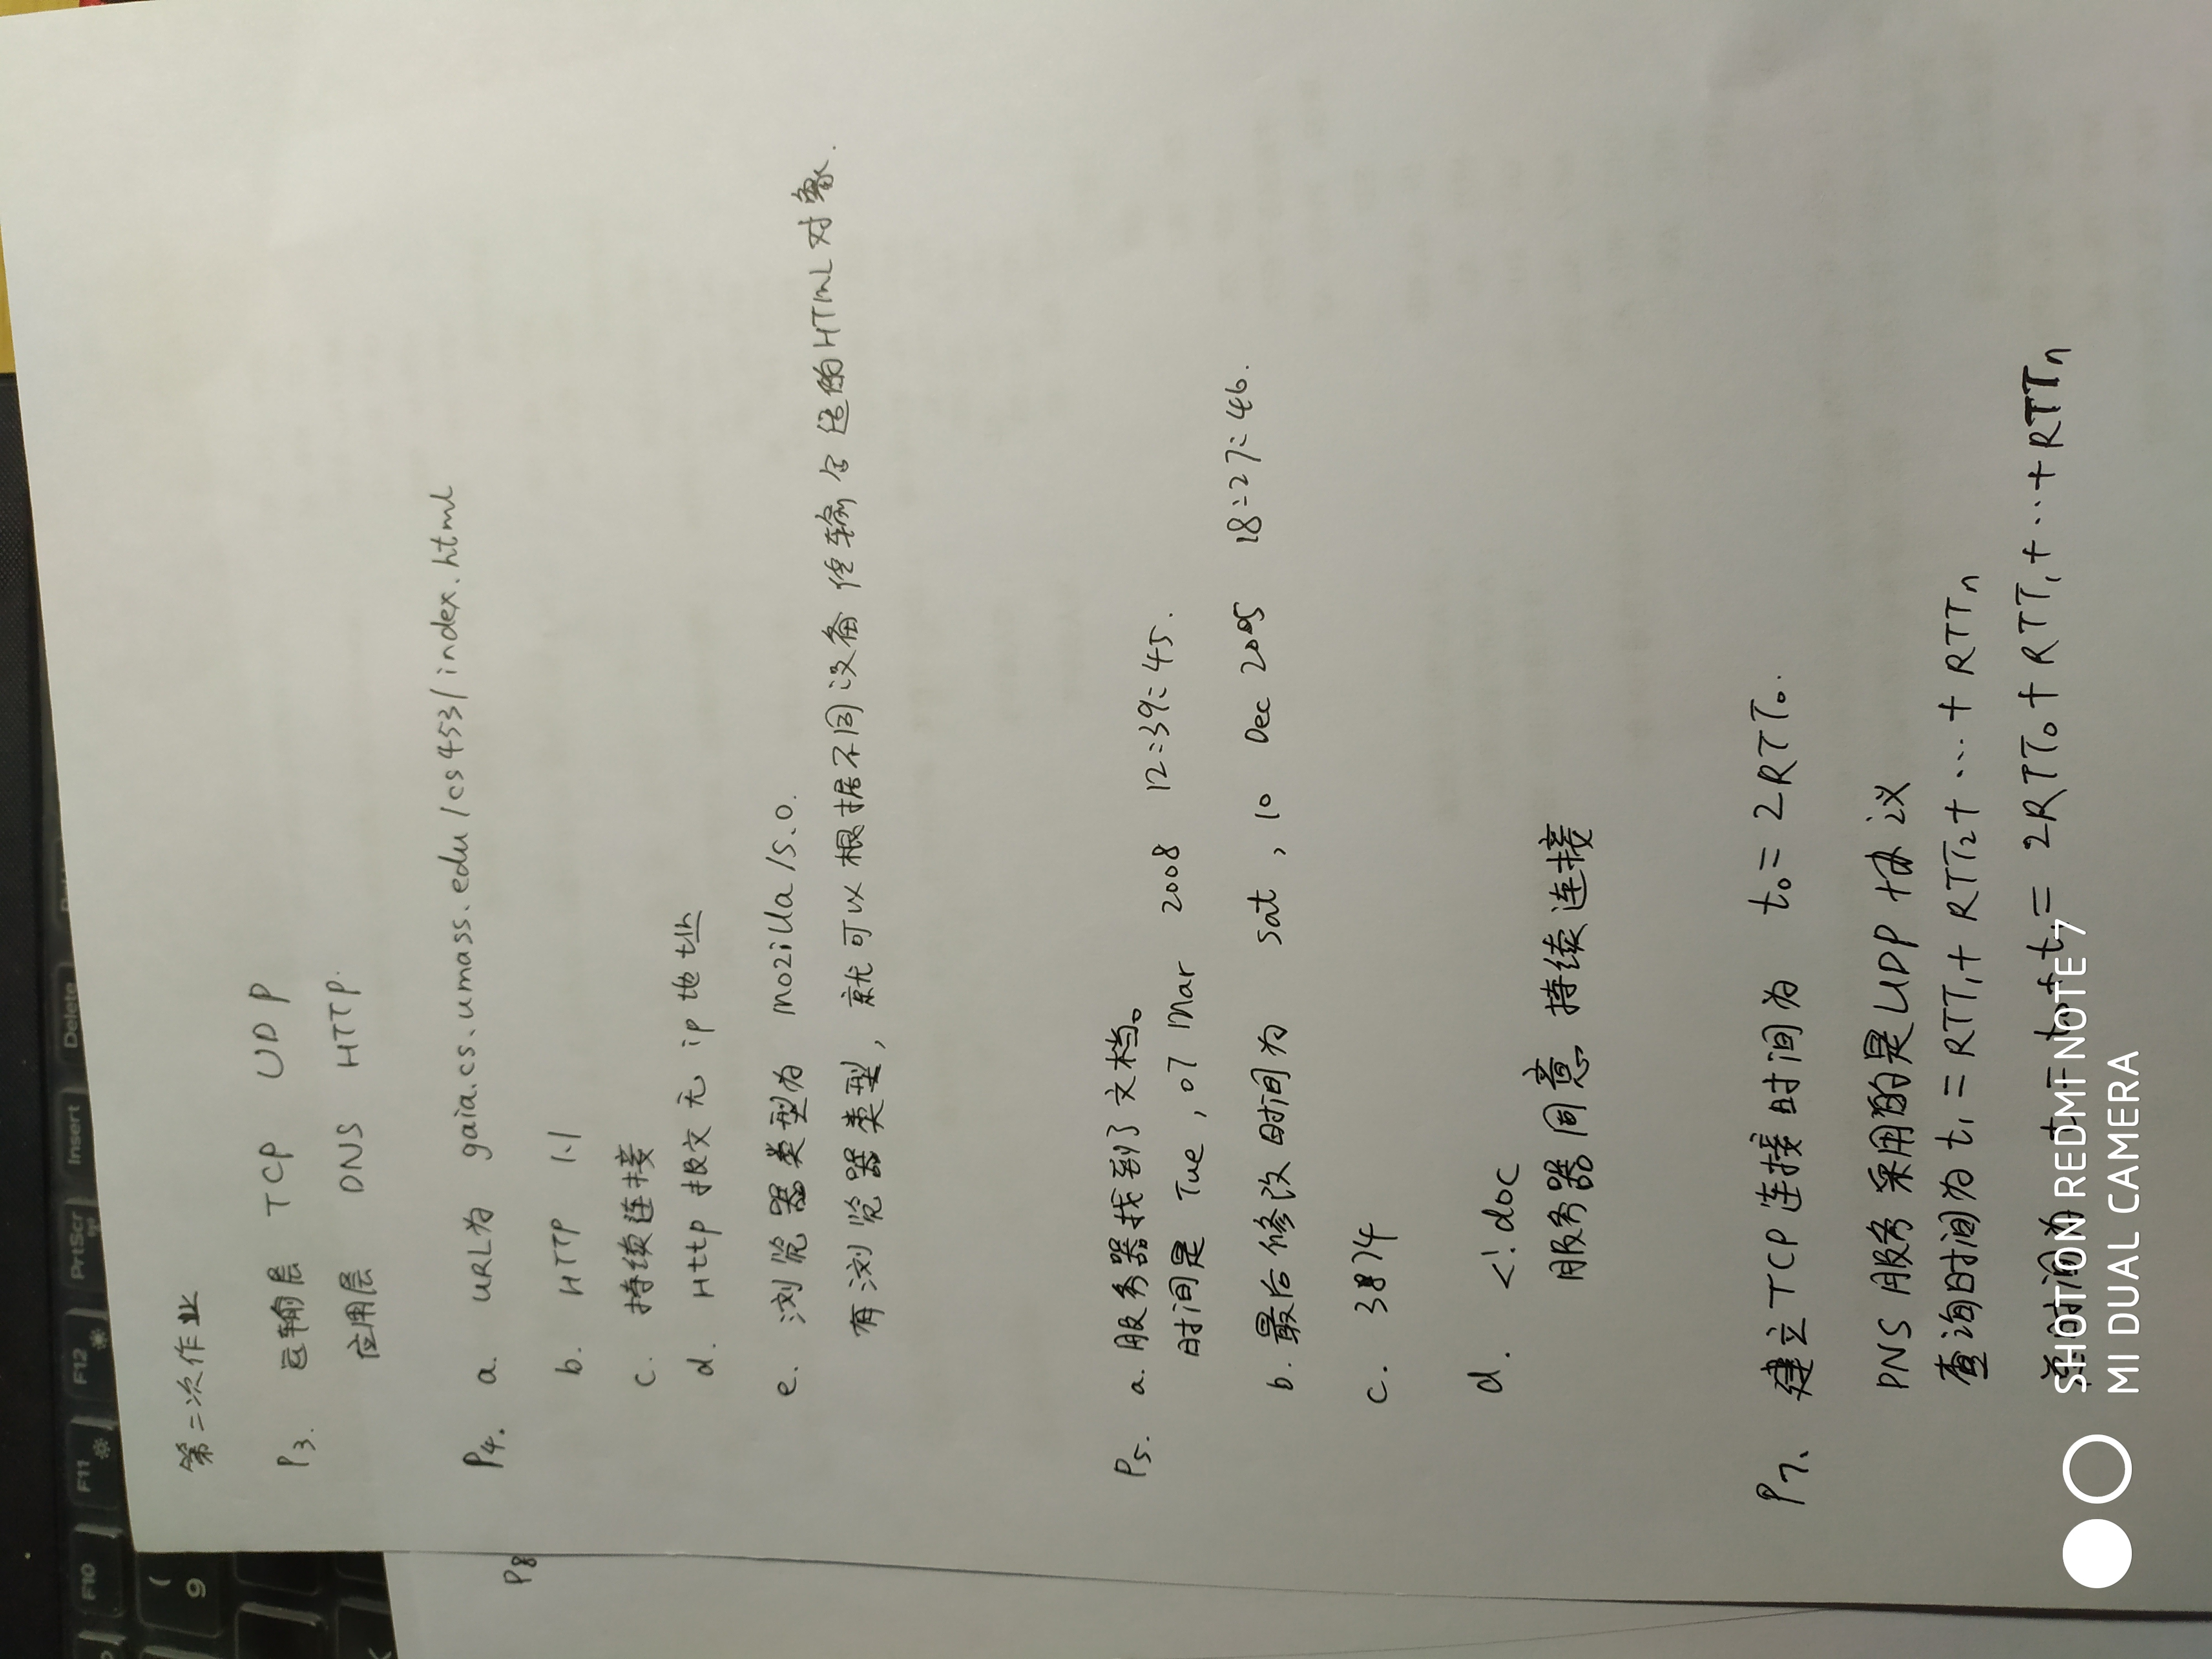 F10 F11 F12 PrtScr Insert Delete
(
9
第二次作业
P3. 运输层 TCP UDP
应用层 DNS HTTP.
P4. a. URL为 gaia.cs.umass.edu/cs453/index.html
P8
b. HTTP 1.1
c. 持续连接
d. Http 报文无 ip 地址
e. 浏览器类型为 mozilla/5.0.
有浏览器类型, 就可以根据不同设备传输合适的HTML对象.
P5. a. 服务器找到了文档。
时间是 Tue, 07 Mar 2008 12:39:45.
b. 最后修改时间为 Sat, 10 Dec 2005 18:27:46.
c. 3874
d. <!doc
服务器同意持续连接
P7. 建立TCP连接时间为 t₀ = 2RTT₀.
DNS 服务采用的是UDP协议
查询时间为 t₁ = RTT₁ + RTT₂ + ... + RTTn
总时间为 t = t₀ + t₁ = 2RTT₀ + RTT₁ + ... + RTTn
SHOT ON REDMI NOTE 7
MI DUAL CAMERA